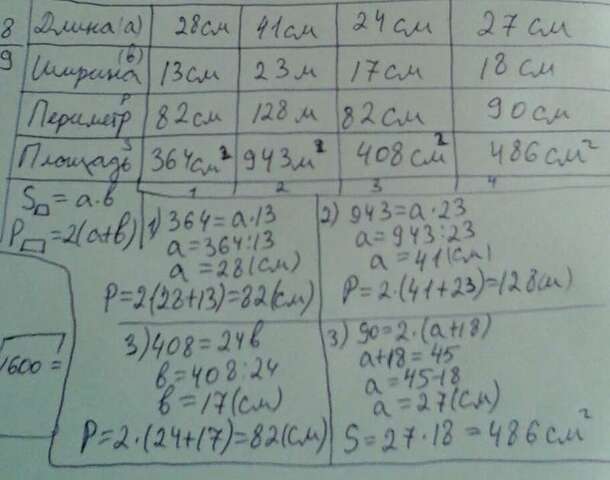 8
9
Длина(а) 28см 41см 24см 27см
Ширина(в) 13см 23м 17см 18см
Периметр P 82см 128м 82см 90см
Площадь S 364см² 943м² 408см² 486см²
1 2 3 4
S▭=а·в
P▭=2(а+в)
1) 364=а·13
а=364:13
а=28(см)
P=2(28+13)=82(см)
2) 943=а·23
а=943:23
а=41(см)
P=2·(41+23)=128(м)
3) 408=24в
в=408:24
в=17(см)
P=2·(24+17)=82(см)
3) 90=2·(а+18)
а+18=45
а=45-18
а=27(см)
S=27·18=486см²
1600=